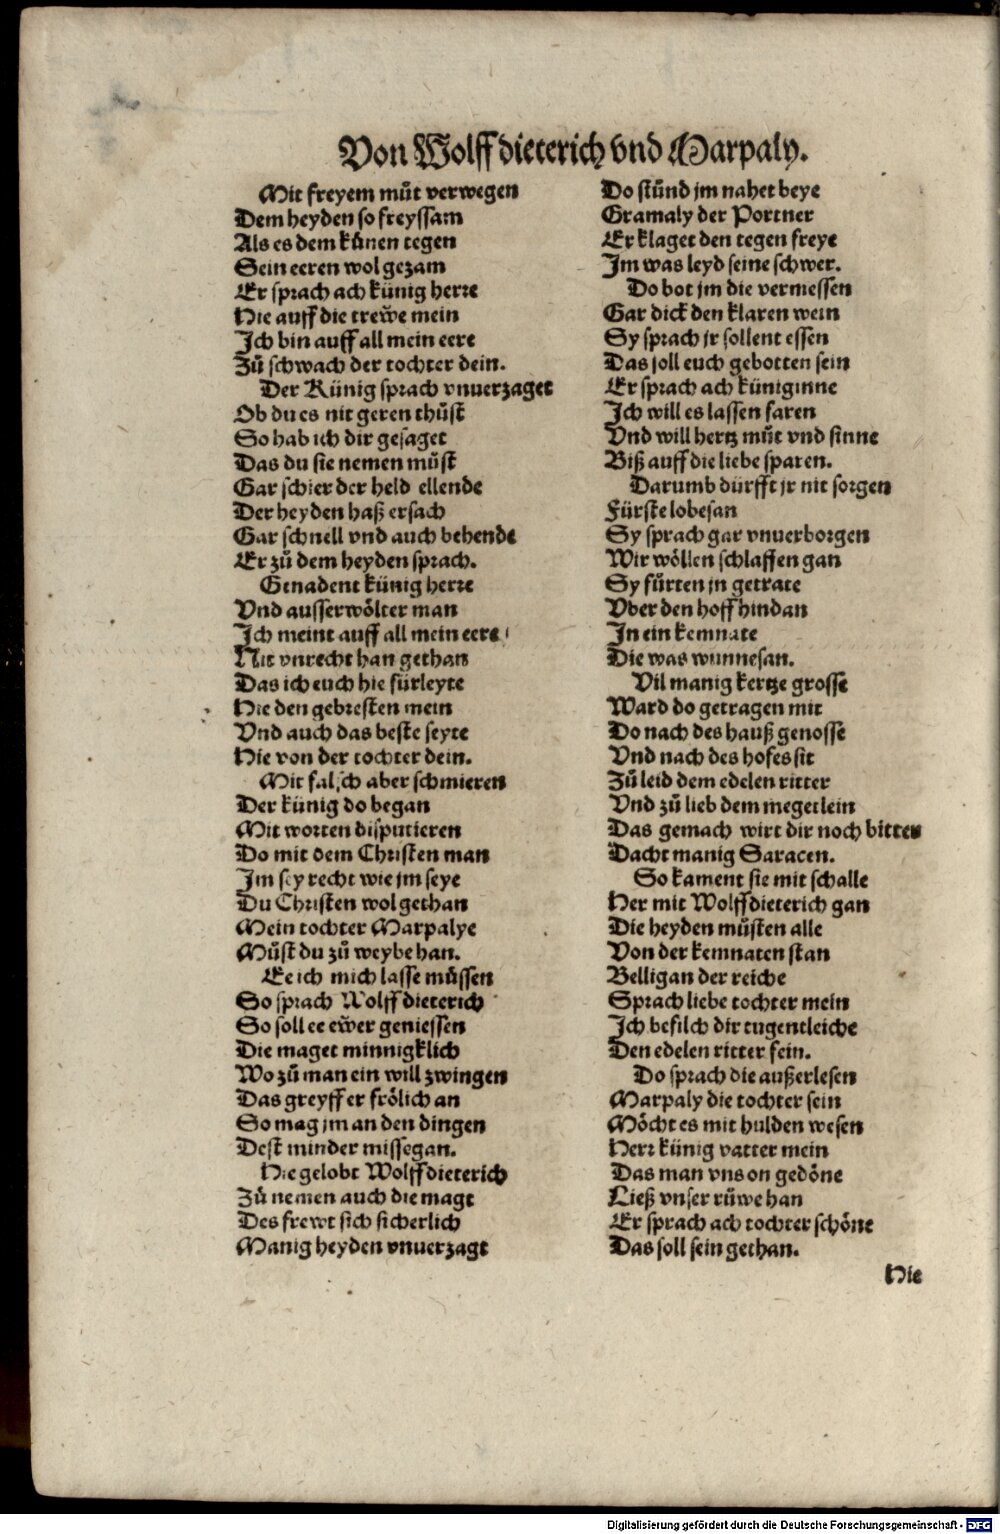 Von Wolffdieterich vnd Marpaly.
Mit freyem můt verwegen
Dem heyden so freyssam
Als es dem kůnen tegen
Sein eeren wol gezam
Er sprach ach künig herre
Hie auff die trew̃e mein
Ich bin auff all mein eere
Zů schwach der tochter dein.
Der Künig sprach vnuerzaget
Ob du es nit geren thůst
So hab ich dir gesaget
Das du sie nemen můst
Gar schier der held ellende
Der heyden haß ersach
Gar schnell vnd auch behende
Er zů dem heyden sprach.
Genadent künig herre
Vnd ausserwölter man
Ich meint auff all mein eere
Nit vnrecht han gethan
Das ich euch hie fürleyte
Hie den gebresten mein
Vnd auch das beste seyte
Hie von der tochter dein.
Mit falsch aber schmieren
Der künig do began
Mit worten disputieren
Do mit dem Christen man
Im sey recht wie jm seye
Du Christen wol gethan
Mein tochter Marpalye
Můst du zů weybe han.
Ee ich mich lasse müssen
So sprach Wolffdieterich
So soll ee ew̃er geniessen
Die maget minnigklich
Wo zů man ein will zwingen
Das greyff er frölich an
So mag jm an den dingen
Dest minder missegan.
Hie gelobt Wolffdieterich
Zů nemen auch die magt
Des frewt sich sicherlich
Manig heyden vnuerzagt
Do stůnd jm nahet beye
Gramaly der Portner
Er klaget den tegen freye
Im was leyd seine schwer.
Do bot jm die vermessen
Gar dick den klaren wein
Sy sprach jr sollent essen
Das soll euch gebotten sein
Er sprach ach küniginne
Ich will es lassen faren
Vnd will hertz můt vnd sinne
Biß auff die liebe sparen.
Darumb dürfft jr nit sorgen
Fürste lobesan
Sy sprach gar vnuerborgen
Wir wöllen schlaffen gan
Sy fürten jn getrate
Vber den hoff hindan
In ein kemnate
Die was wunnesan.
Vil manig kertze grosse
Ward do getragen mit
Do nach des hauß genosse
Vnd nach des hofes sit
Zů leid dem edelen ritter
Vnd zů lieb dem megetlein
Das gemach wirt dir noch bitter
Dacht manig Saracen.
So kament sie mit schalle
Her mit Wolffdieterich gan
Die heyden můsten alle
Von der kemnaten stan
Belligan der reiche
Sprach liebe tochter mein
Ich befilch dir tugentleiche
Den edelen ritter fein.
Do sprach die außerlesen
Marpaly die tochter sein
Möcht es mit hulden wesen
Herr künig vatter mein
Das man vns on gedöne
Ließ vnser růwe han
Er sprach ach tochter schöne
Das soll sein gethan.
Hie
Digitalisierung gefördert durch die Deutsche Forschungsgemeinschaft - DFG